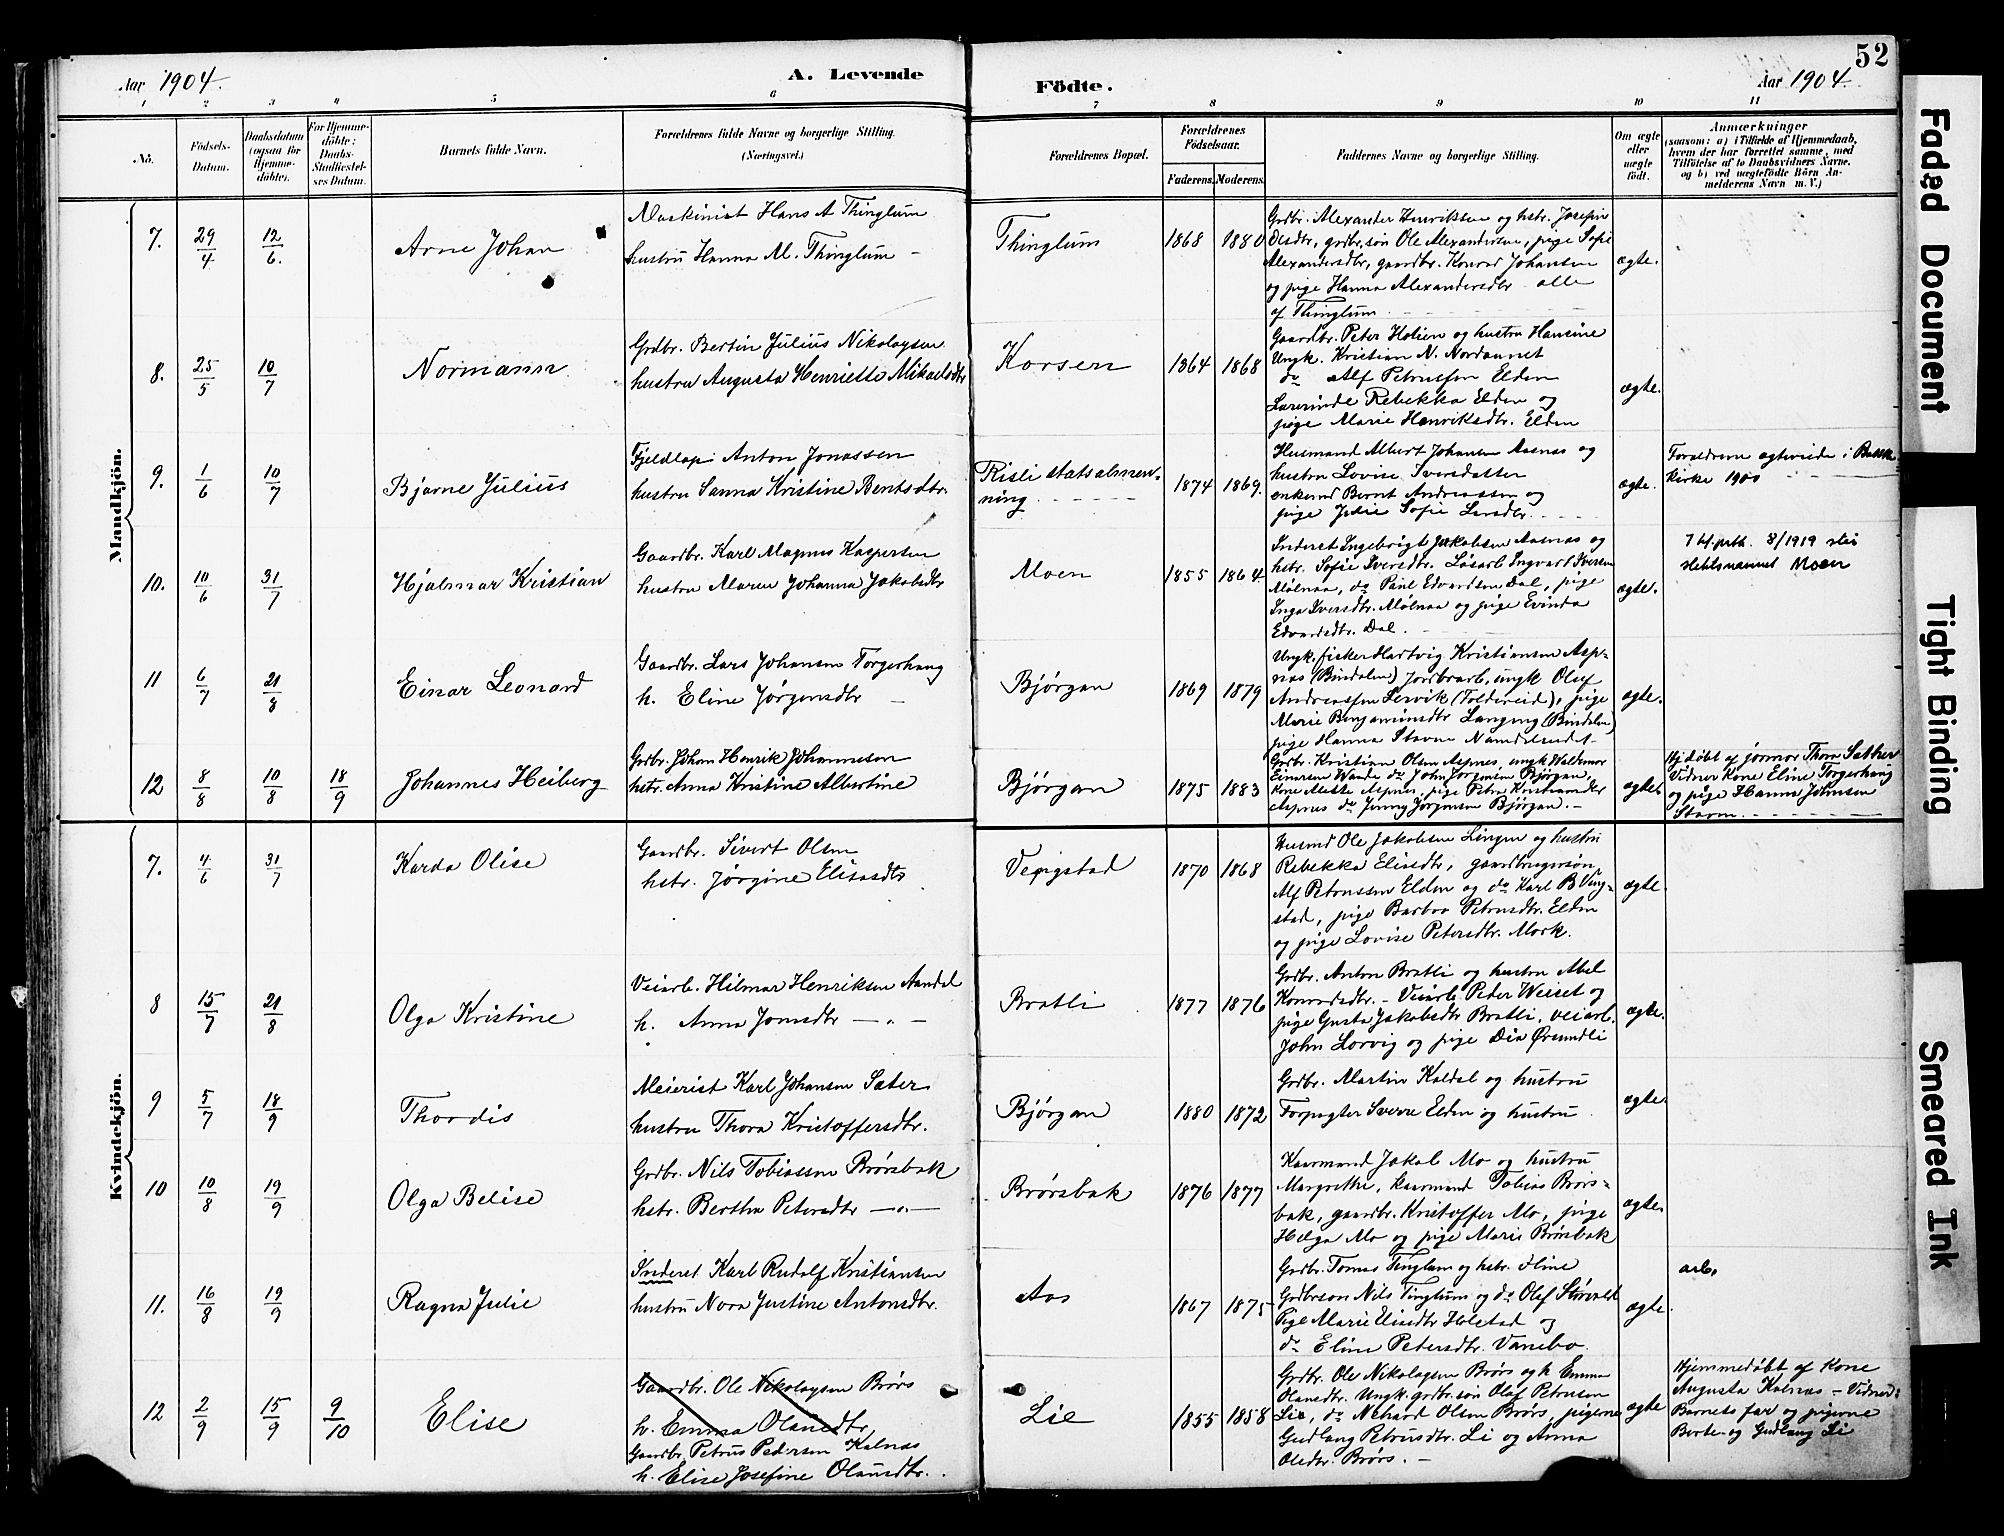 52
Aar 1904. A. Levende
Födte. Aar 1904.
1 2 3 4 5 6 7 8 9 10 11
No.
Födsels-
Datum.
Daabsdatum
(ogsaa for
Hjemme-
döbte).
For Hjemme-
döbte:
Daabs-
Stadfæstel-
ses Datum.
Barnets fulde Navn.
Forældrenes fulde Navne og borgerlige Stilling.
(Næringsvei.)
Forældrenes Bopæl.
Forældrenes
Födselsaar.
Faderens. Moderens.
Faddernes Navne og borgerlige Stilling.
Om ægte
eller
uægte
födt.
Anmærkninger
(saasom: a) i Tilfælde af Hjemmedaab,
hvem der har forrettet samme, med
Tilföielse af to Daabsvidners Navne.
og b) ved uægtefödte Börn An-
melderens Navn m. V.)
Mandkjön.
7. 29/4 12/6. Arne Johan
Maskinist Hans A Thinglum
hustru Hanna M. Thinglum –
Thinglum 1868 1880
Grdbr. Alexander Henriksen og hstr. Josefine
Olsdtr, grdbr.søn Ole Alexandersen, pige Sofie
Alexandersdtr, gaardbr. Konrad Johansen
og pige Hanna Alexandersdtr alle
af Thinglum
ægte.
8. 25/5 10/7 Normann
Grdbr. Bertin Julius Nikolaysen
hustru Augusta Henriette Mikaelsdtr
Korsen 1864 1868
Gaardbr. Peter Holien og hustru Hansine
Ungk. Kristian N. Nordaunet
do Alf Petrussen Elden
Lærerinde Rebekka Elden og
pige Marie Henriksdtr. Elden
ægte.
9. 1/6 10/7 Bjarne Julius
Fjeldlap Anton Jonassen
hustru Sanna Kristine Bentsdtr.
Risli statsalmen-
ning 1874 1869.
Husmand Albert Johansen Aasnes og
hustru Lovise Iversdatter
enkemd Bernt Andreassen og
pige Julie Sofie Larsdtr.
ægte.
Forældrene ægteviede i
kirke 1900
10. 10/6 31/7 Hjalmar Kristian
Gaardbr. Karl Magnus Kaspersen
hustru Maren Johanna Jakobsdtr
Moen 1855 1864.
Inderst Ingebrigt Jakobsen Aasnes og
hstr. Sofie Iversdtr. Løsarb. Ingvart Iversen
Mølnaa, do Paul Edvardsen Dal, pige
Inga Iversdtr. Mølnaa og pige Evinda
Edvardsdtr. Dal.
ægte.
8/1919
slektsnavnet Moen
11 6/7 21/8 Einar Leonard
Gaardbr. Lars Johansen Torgerhaug
h. Eline Jørgensdtr –
Bjørgan 1869 1879
Ungk. fisker Hartvig Kristiansen Asp-
nas (Bindalen) Jordbrarb, ungk Oluf
Andreassen Lervik (Foldereid), pige
Marie Benjaminsdtr Langing (Bindalen)
pige Hanna Stavne Namdalseidet
ægte.
12 8/8 10/8 18/9 Johannes Heiberg
Grdbr. Johan Henrik Johannesen
hstr. Anna Kristine Albertine
Bjørgan 1875 1883
Grdbr. Kristian Olsen Aspnes, ungk Waldemar
Einersen Wande do John Jørgensen Bjørgan,
Kone Mette Aspnes, pige Petra Kristiansdtr
Aspnes do Jenny Jørgensen Bjørgan. –
ægte.
Hj.døbt af jormor Thora Sæther
Vidner Kone Eline Torgerhaug
og pige Hanna Johnsen
Stavn
Kvindekjön.
7. 4/6 31/7 Karda Olise
Gaardbr. Sivert Olsen
hstr. Jørgine Eliasdtr
Vengstad 1870 1868
Husmd Ole Jakobsen Lingen og hustru
Rebekka Eliasdtr, gaardbrugersøn
Alf Petrussen Elden og do Karl B Veng-
stad, pige Barbro Petrusdtr. Elden
og pige Lovise Petersdtr. Mork.
ægte.
8 15/7 21/8 Olga Kristine
Veiarb. Hilmar Henriksen Aandal
h. Anna Jonsdtr – „ –
Bratli 1877 1876
Grdbr. Anton Bratli og hustru Abel
Konradsdtr. – Veiarb. Peder Weiset og
pige Gusta Jakobsdtr Bratli, veiarb.
John Lorvig og pige Dia Ørsundli
ægte.
9 5/7 18/9 Thordis
Meierist Karl Johansen Sæter
hustru Thora Kristoffersdtr.
Bjørgan 1880 1872
Grdbr. Martin Kaldal og hustru
Forpagter Sverre Elden og hustru
ægte
10 10/8 19/9 Olga Belise
Grdbr. Nils Tobiassen Brørsbak
hstr. Bertha Petersdtr – „ –
Brørsbak 1876 1877
Kaarmand Jakob Mo og hustru
Margrethe, kaarmand Tobias Brørs-
bak, gaardbr. Kristoffer Mo, pige
Helga Mo og pige Marie Brørsbak
ægte.
11. 16/8 19/9 Ragna Julie
Inderst Karl Rudolf Kristiansen
hustru Nora Justine Antonsdtr.
Aas 1867 1875
Grdbr. Tomas Tinglum og hstr. Eline
Grdbrsøn Nils Tinglum og do Olaf Størvold
Pige Marie Elisedtr Holstad og
do Eline Petersdtr. Vanebo.
ægte.
arb.
12 2/9 15/9 9/10 Elise
Gaardbr. Ole Nikolaysen Brørs
h. Emma Olausdtr.
Gaardbr Petrus Pedersen Kalnas
h. Elise Josefine Olausdtr.
Lie 1855 1858
Grdbr. Ole Nikolaysen Brørs og h Emma
Olausdtr. Ungk. grdbr.søn Olaf Petrusen
Lie, do Nehard Olsen Brørs, pigerne
Gudlaug Petrusdtr. Li og Anna
Olesdtr. Brørs. –
ægte
Hjemmedøbt af Kone
Augusta Kalnas – Vidner:
Barnets far og pigerne
Berte og Gudlaug Li
Faded Document
Tight Binding
Smeared Ink